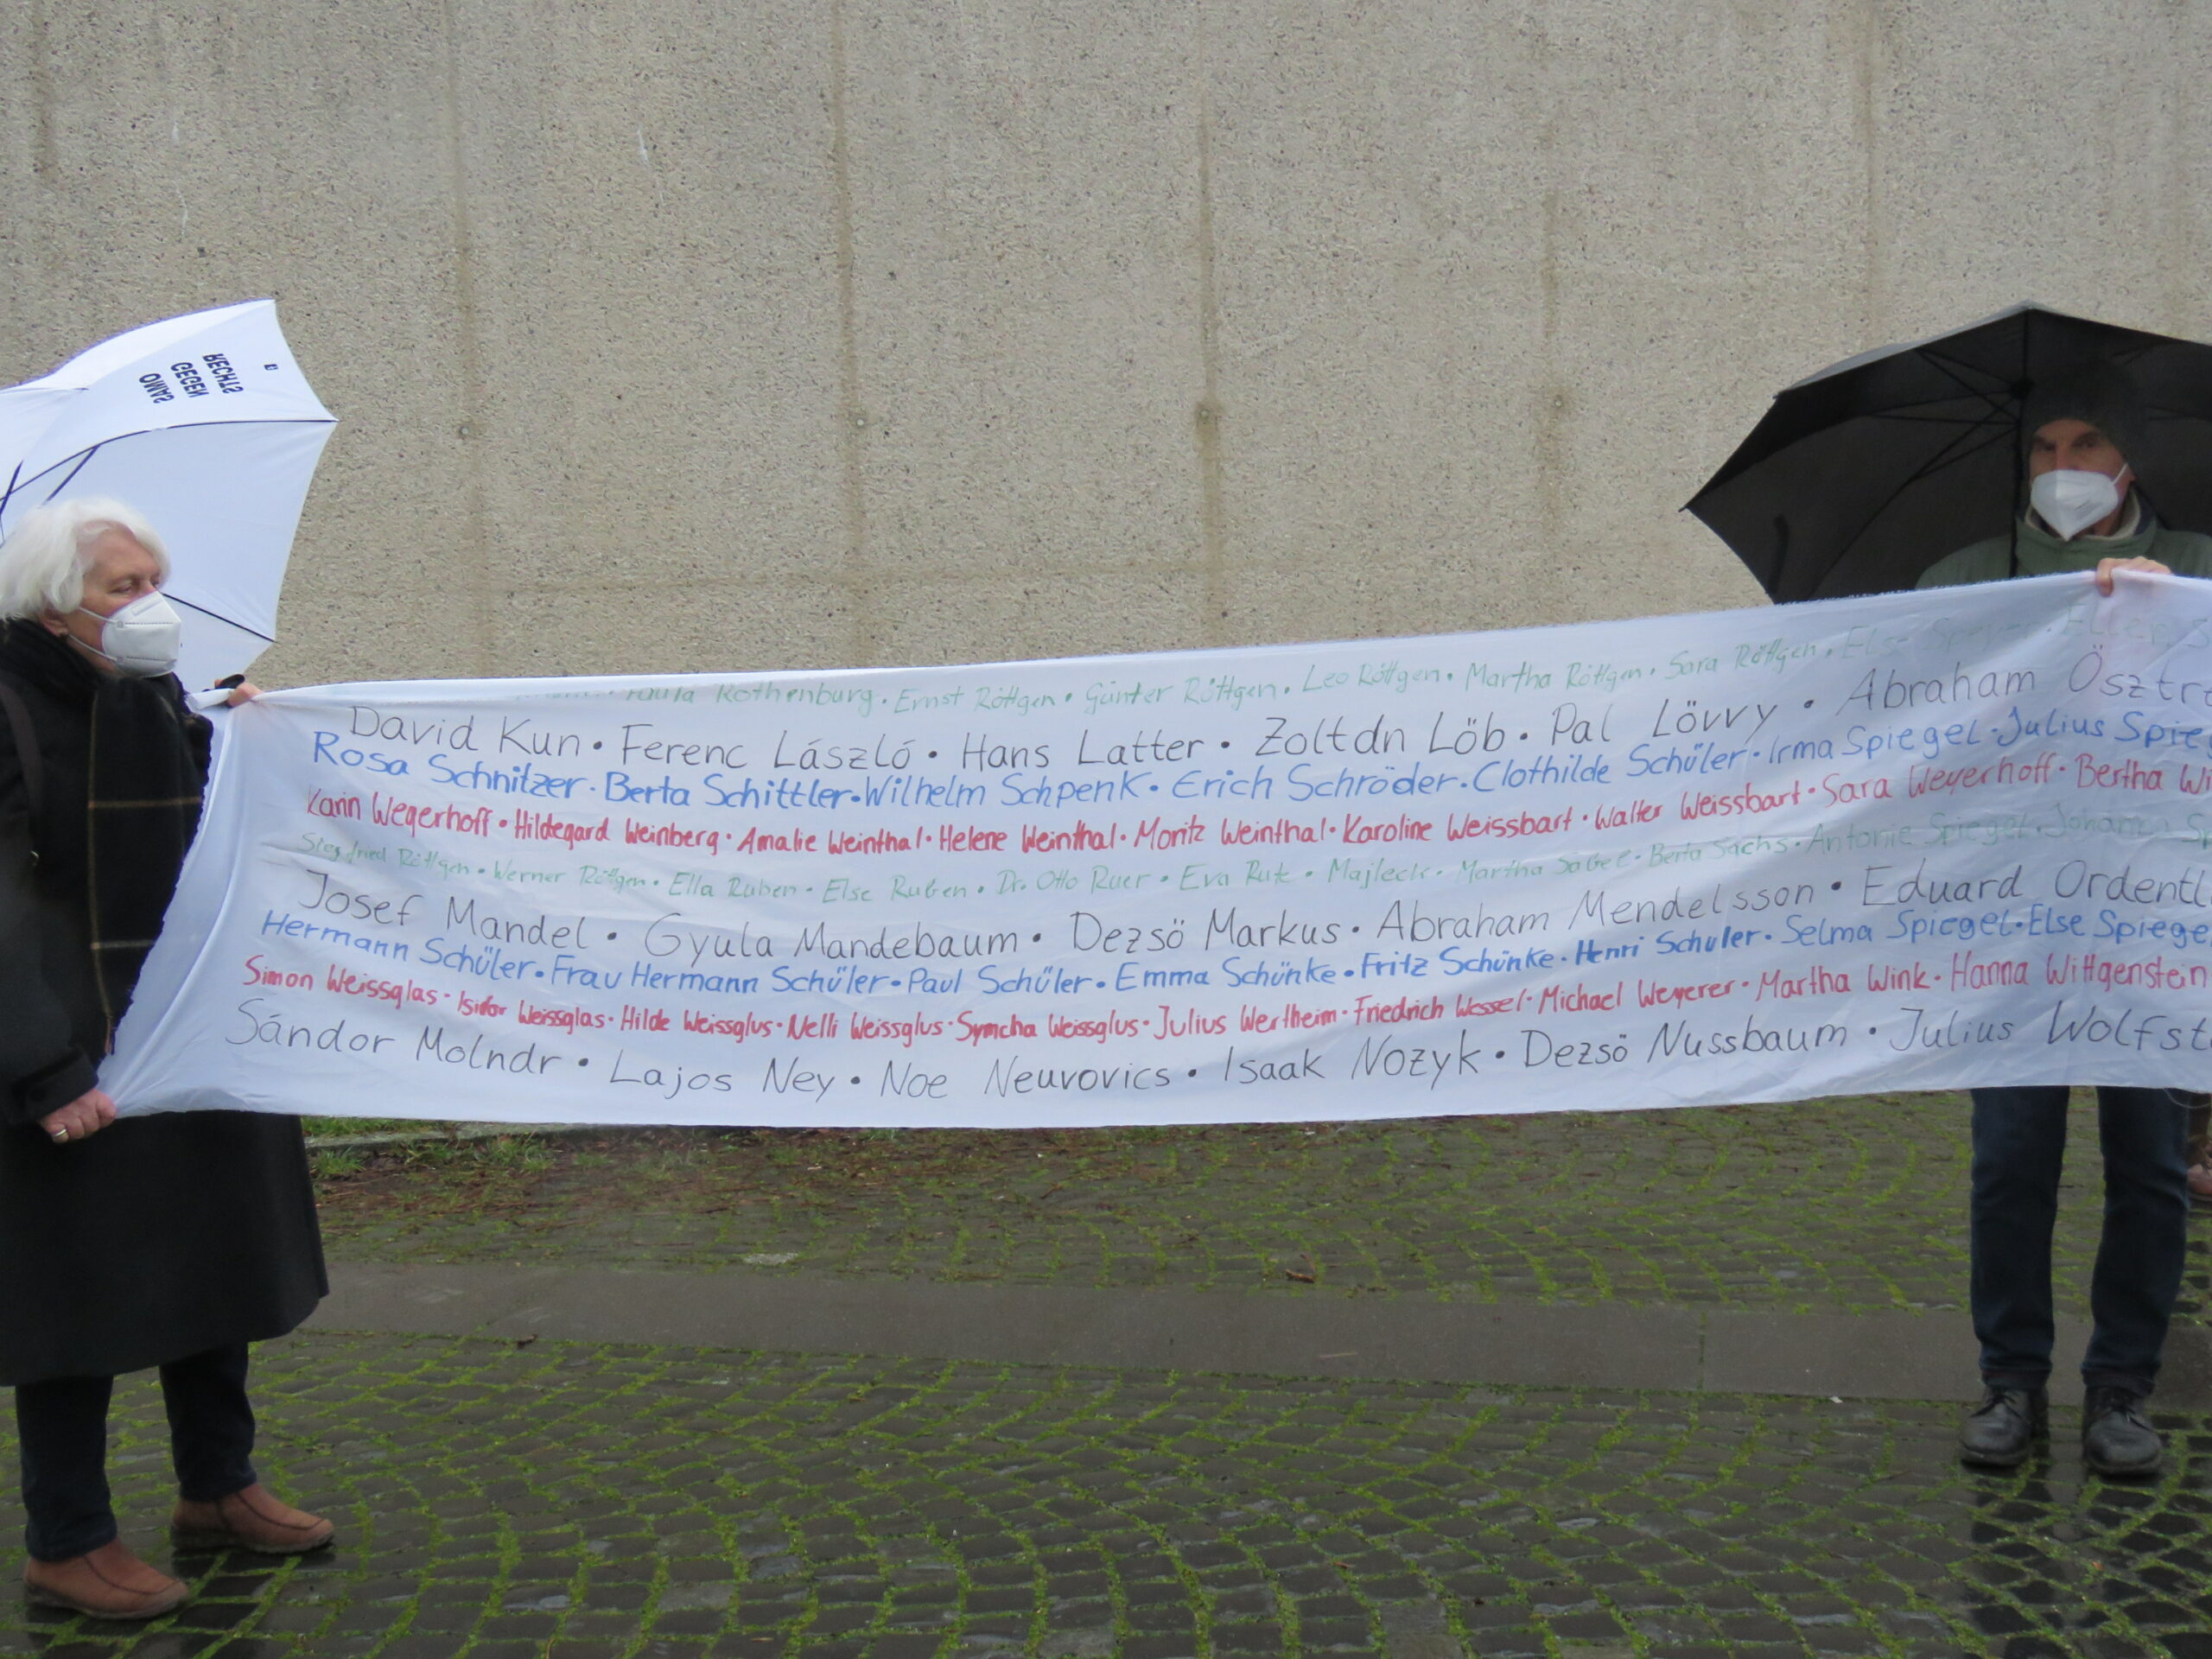 OMAS
GEGEN
RECHTS
Paula Rothenburg • Ernst Röttgen • Günter Röttgen • Leo Röttgen • Martha Röttgen • Sara Röttgen • Else
David Kun • Ferenc László • Hans Latter • Zoltdn Löb • Pal Lövvy • Abraham
Rosa Schnitzer • Berta Schittler • Wilhelm Schpenk • Erich Schröder • Clothilde Schüler • Irma Spiegel • Julius
Karin Wegerhoff • Hildegard Weinberg • Amalie Weinthal • Helene Weinthal • Moritz Weinthal • Karoline Weissbart • Walter Weissbart • Sara Weyerhoff • Bertha
Siegfried Röttgen • Werner Röttgen • Ella Ruben • Else Ruben • Dr. Otto Ruer • Eva • Majleck • Martha • Berta Sachs • Antonie Spiegel • Johanna
Josef Mandel • Gyula Mandebaum • Dezsö Markus • Abraham Mendelsson • Eduard
Hermann Schüler • Frau Hermann Schüler • Paul Schüler • Emma Schünke • Fritz Schünke • Henri Schuler • Selma Spiegel • Else
Simon Weissglas • Isidor Weissglas • Hilde Weissglus • Nelli Weissglus • Symcha Weissglus • Julius Wertheim • Friedrich Wessel • Michael Weyerer • Martha Wink • Hanna Wittgenstein
Sándor Molndr • Lajos Ney • Noe Neuvovics • Isaak Nozyk • Dezsö Nussbaum • Julius